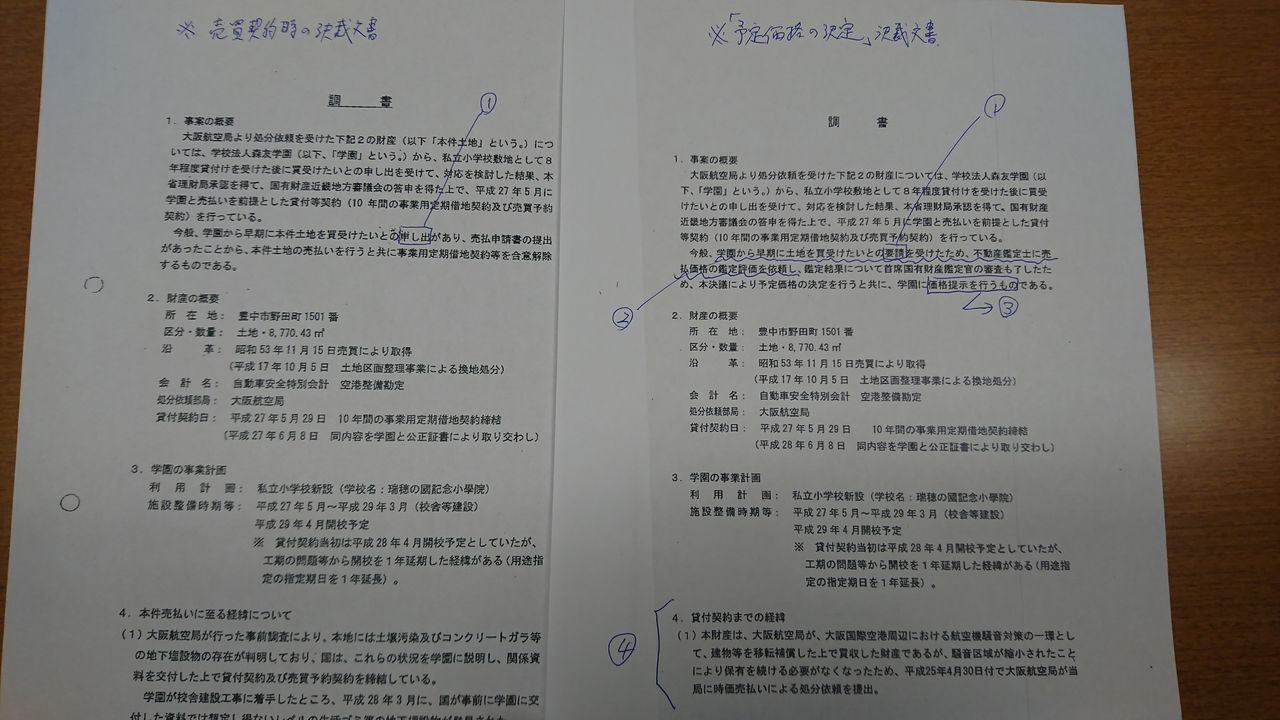 ※ 売買契約時の決裁文書
調 書
①
1．事案の概要
大阪航空局より処分依頼を受けた下記2の財産（以下「本件土地」という。）につ
いては、学校法人森友学園（以下、「学園」という。）から、私立小学校敷地として8
年程度貸付けを受けた後に買受けたいとの申し出を受けて、対応を検討した結果、本
省理財局承認を得て、国有財産近畿地方審議会の答申を得た上で、平成27年5月に
学園と売払いを前提とした貸付等契約（10年間の事業用定期借地契約及び売買予約
契約）を行っている。
今般、学園から早期に本件土地を買受けたいとの申し出があり、売払申請書の提出
があったことから、本件土地の売払いを行うと共に事業用定期借地契約等を合意解除
するものである。
2．財産の概要
所 在 地： 豊中市野田町1501番
区分・数量： 土地・8,770.43㎡
沿 革： 昭和53年11月15日売買により取得
（平成17年10月5日 土地区画整理事業による換地処分）
会 計 名： 自動車安全特別会計 空港整備勘定
処分依頼部局： 大阪航空局
貸付契約日： 平成27年5月29日 10年間の事業用定期借地契約締結
（平成27年6月8日 同内容を学園と公正証書により取り交わし）
3．学園の事業計画
利 用 計 画： 私立小学校新設（学校名：瑞穂の國記念小學院）
施設整備時期等： 平成27年5月～平成29年3月（校舎等建設）
平成29年4月開校予定
※ 貸付契約当初は平成28年4月開校予定としていたが、
工期の問題等から開校を1年延期した経緯がある（用途指
定の指定期日を1年延長）。
4．本件売払いに至る経緯について
（1）大阪航空局が行った事前調査により、本地には土壌汚染及びコンクリートガラ等
の地下埋設物の存在が判明しており、国は、これらの状況を学園に説明し、関係資
料を交付した上で貸付契約及び売買予約契約を締結している。
学園が校舎建設工事に着手したところ、平成28年3月に、国が事前に学園に交
付した資料では想定し得ないレベルの生活ゴミ等の地下埋設物が発見された
※「予定価格の決定」決裁文書
調 書
①
1．事案の概要
大阪航空局より処分依頼を受けた下記2の財産については、学校法人森友学園（以
下、「学園」という。）から、私立小学校敷地として8年程度貸付けを受けた後に買受
けたいとの申し出を受けて、対応を検討した結果、本省理財局承認を得て、国有財産
近畿地方審議会の答申を得た上で、平成27年5月に学園と売払いを前提とした貸付
等契約（10年間の事業用定期借地契約及び売買予約契約）を行っている。
今般、学園から早期に土地を買受けたいとの要請を受けたため、不動産鑑定士に売
払価格の鑑定評価を依頼し、鑑定結果について首席国有財産鑑定官の審査も了したた
め、本決議により予定価格の決定を行うと共に、学園に価格提示を行うものである。
② ③
2．財産の概要
所 在 地： 豊中市野田町1501番
区分・数量： 土地・8,770.43㎡
沿 革： 昭和53年11月15日売買により取得
（平成17年10月5日 土地区画整理事業による換地処分）
会 計 名： 自動車安全特別会計 空港整備勘定
処分依頼部局： 大阪航空局
貸付契約日： 平成27年5月29日 10年間の事業用定期借地契約締結
（平成28年6月8日 同内容を学園と公正証書により取り交わし）
3．学園の事業計画
利 用 計 画： 私立小学校新設（学校名：瑞穂の國記念小學院）
施設整備時期等： 平成27年5月～平成29年3月（校舎等建設）
平成29年4月開校予定
※ 貸付契約当初は平成28年4月開校予定としていたが、
工期の問題等から開校を1年延期した経緯がある（用途
指定の指定期日を1年延長）。
④
4．貸付契約までの経緯
（1）本財産は、大阪航空局が、大阪国際空港周辺における航空機騒音対策の一環とし
て、建物等を移転補償した上で買収した財産であるが、騒音区域が縮小されたこと
により保有を続ける必要がなくなったため、平成25年4月30日付で大阪航空局が当
局に時価売払いによる処分依頼を提出。